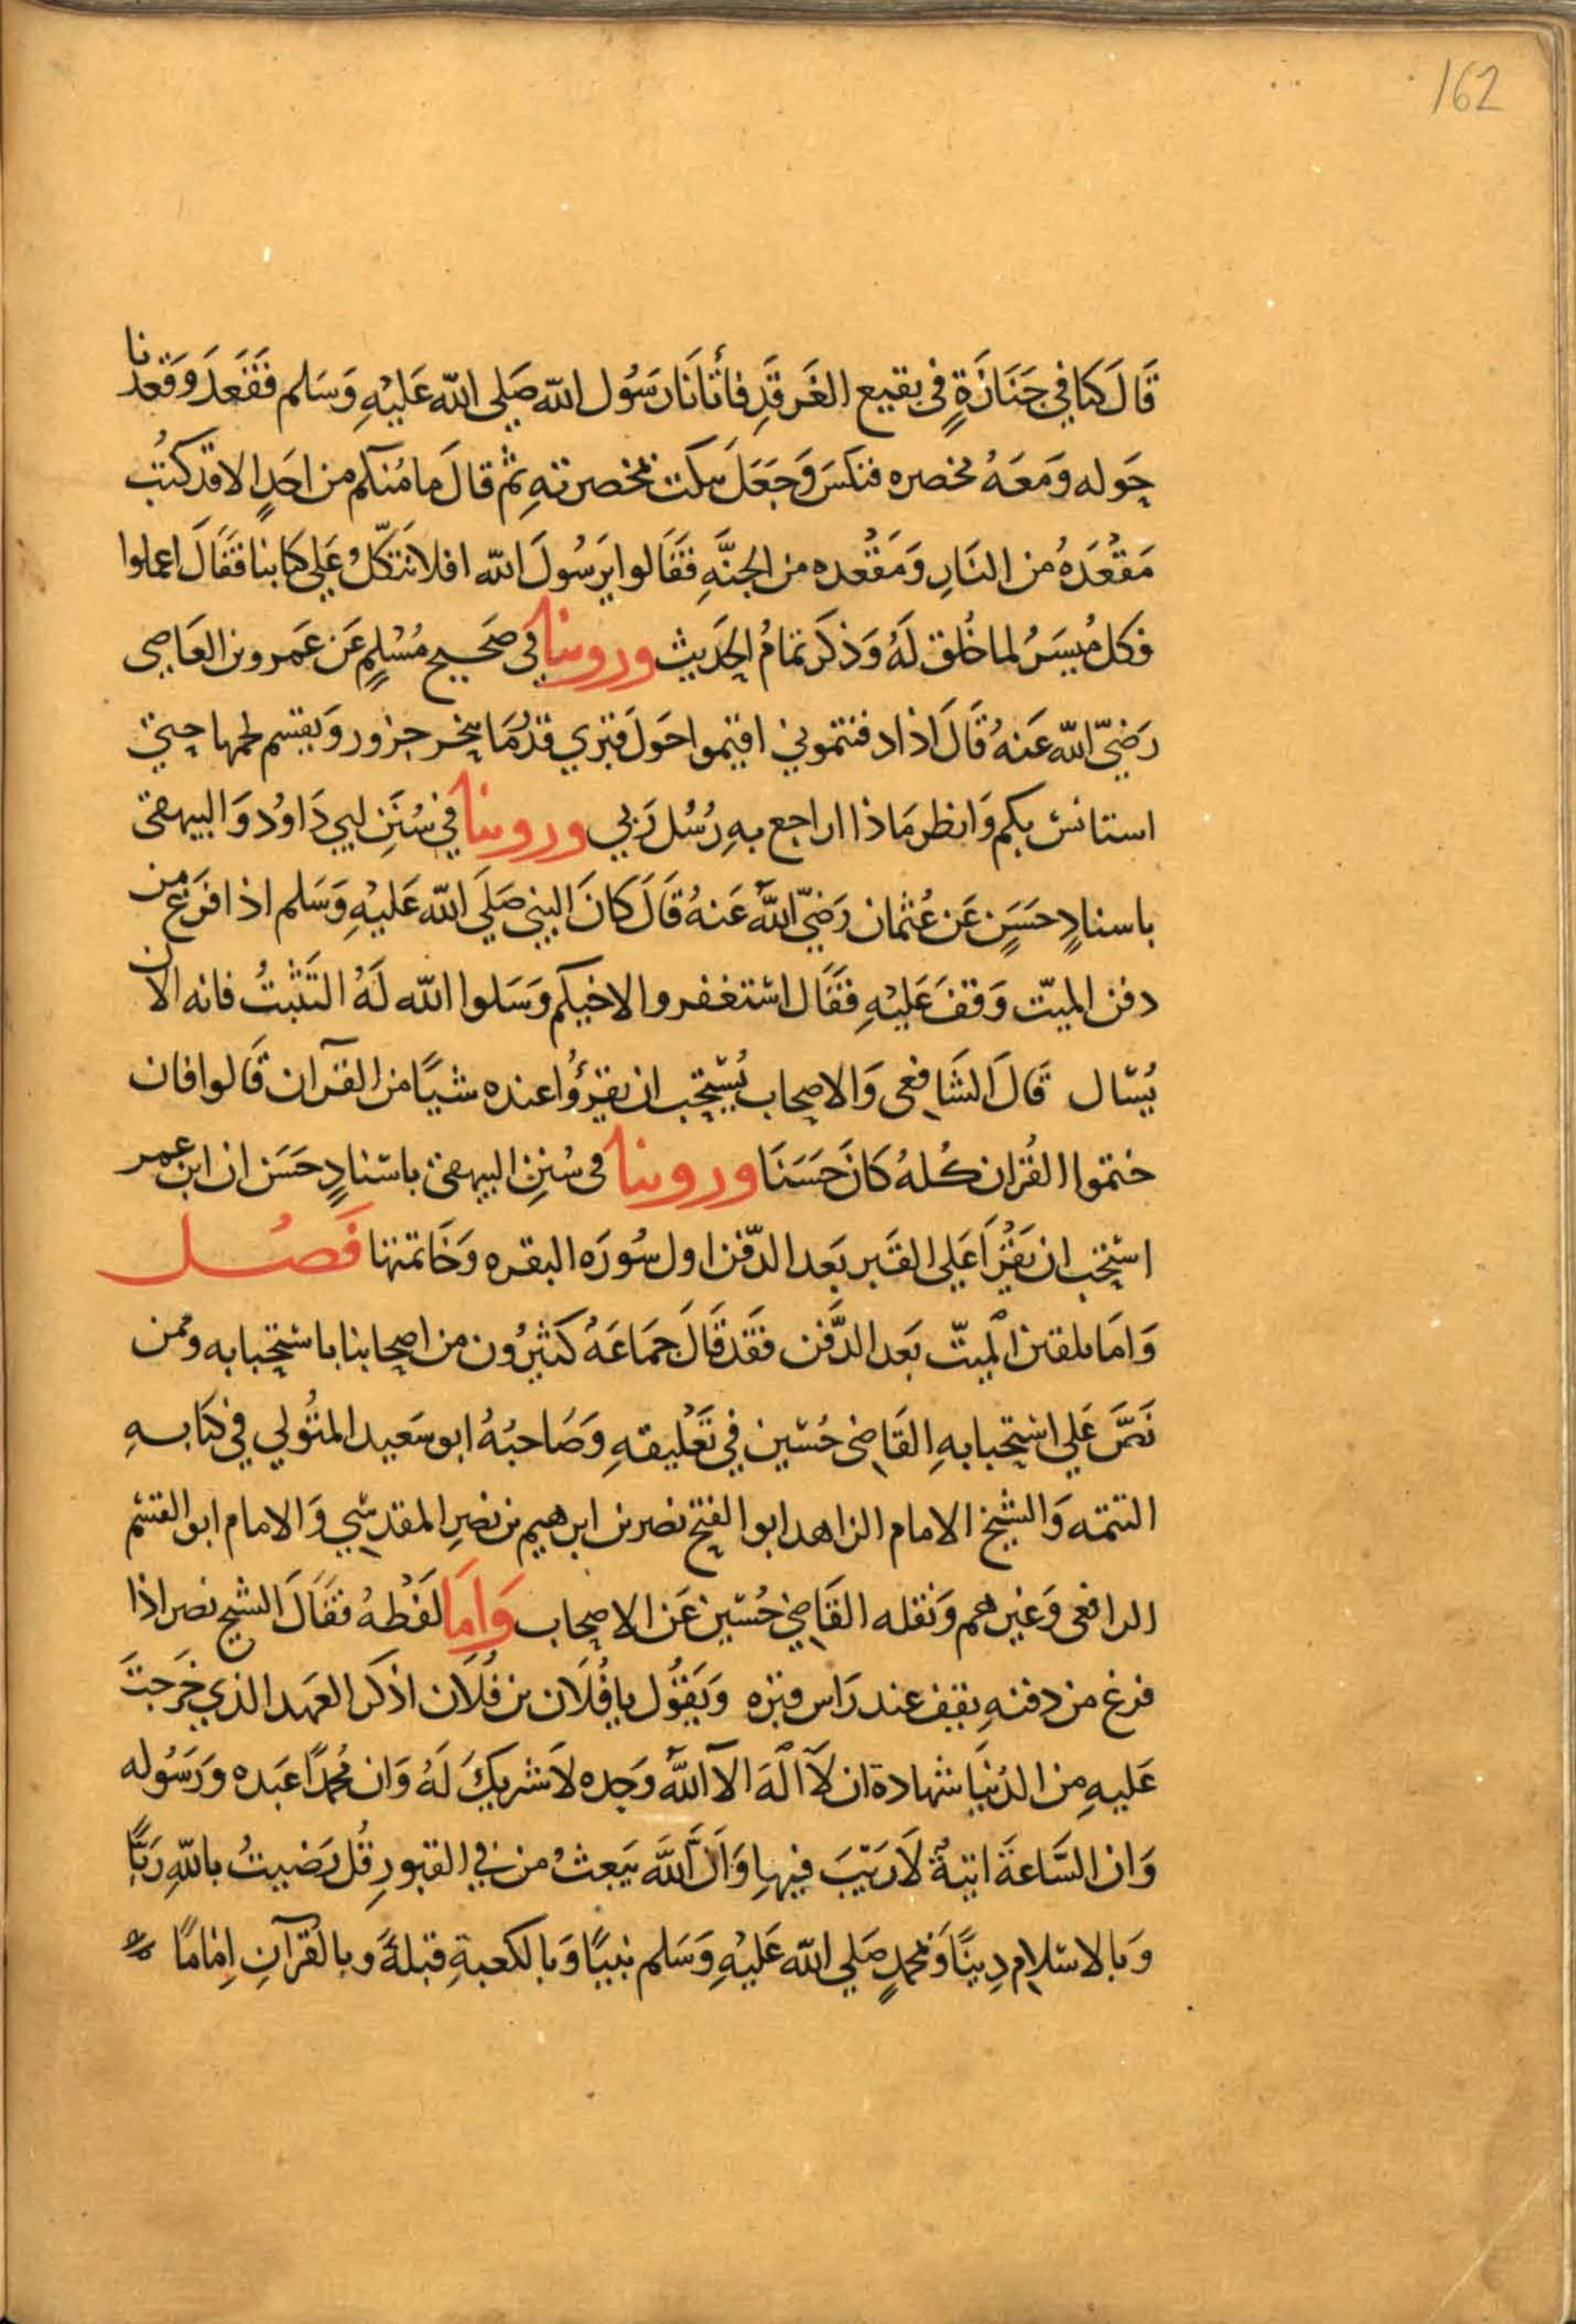 162
قَالَ كنا في جَنَازَةٍ في بقيع الغَرقَدِ فأتَانَا رَسُول الله صَلي الله عَليْهِ وَسَلم فَقَعَدَ وَقعَدنا
حَوله وَمَعَهُ مخصره فنكسَ وَجَعَلَ ينكت بمخصرته ثم قالَ ما مُنكم من احَدٍ الا قد كتُب
مَقعُدَهُ من النَارِ وَمَقعُده من الجنَّةِ فَقَالوا يَرسُولَ الله افلا نتكّلُ عَلي كتابنا فقَالَ اعملوا
فكل مُيسَرُ لما خُلق لَهُ وَذكَر تمامُ الحَديث وروينا في صَحيح مُسْلِمٍ عَن عَمرو بن العَاصِي
رَضيّ الله عَنهُ قَالَ اذا دفنتموني اقيموا حَولَ قبري قدرُمَا ينحر جزور وَيقسم لحمها حتي
استانسَ بكم وَانظر مَاذا اراجع بهِ رُسُل رَبي وروينا في سُنَنِ ابي دَاوُد وَالبيهقي
باسنادٍ حَسَنٍ عَن عُثمان رَضيّ اللهُ عَنهُ قَالَ كانَ النبي صَلَي الله عَليْهِ وَسَلم اذا فرَغ من
دفن الميّت وَقفَ عَليْهِ فقَال استغفروا لاخيكم وَسَلوا الله لَهُ التَثبتُ فانه الان
يُسْال قَالَ الشَافعي وَالاصحاب يُستحب ان يقرؤُا عنده شيًا من القرآن قَالوا فان
ختموا القُران كُلهُ كَانَ حَسَنَا وروينا في سُننِ البيهقي باسنادٍ حَسَن ان ابن عمر
استحب ان يَقرَأ عَلي القَبر بَعد الدّفن اول سُورَه البقره وَخَاتمتها فَصُل
وَامَا تلقين الميّت بَعد الدَّفن فقَد قَالَ جَمَاعَهُ كَثيرُون من اصحابنا باستحبابه وممن
نَصَّ عَلي استحبابهِ القَاضي حُسَين في تَعْليقهِ وَصَاحبُهُ ابو سَعيد المتُولي في كتَابهِ
التتمه وَالشيخ الامام الزاهد ابو الفتح نصر بن ابرهيم بن نصرِ المقدسي وَالامام ابو القسَم
الرافعي وَغيرهم وَنقله القَاضي حُسَين عَن الاصحاب وَامَا لفَظهُ فقَالَ الشيخ نصر اذا
فرغ من دفنهِ يقف عند رَاس قبره وَيَقوُل يا فُلَان بن فُلَان اذكَر العَهد الذي خَرجتَ
عَليهِ من الدُنيَا شهادة ان لآ الَهَ الآ اللهُ وَحده لَا شريكَ لَهُ وَان مُحمدًا عَبَده وَرَسُوله
وَان السَّاعَةَ اتيةٌ لَا رَيْبَ فيها وَانَّ اللهَ يَبعثُ من في القبورِ قُل رَضيتُ باللهِ رَبًّا
وَبالاسلامِ دِينًا وَبمحمدٍ صَلي الله عَليْهِ وَسَلم نبيًا وَبالكعبةِ قبلةً وبالقُرآنِ اِمَامًا